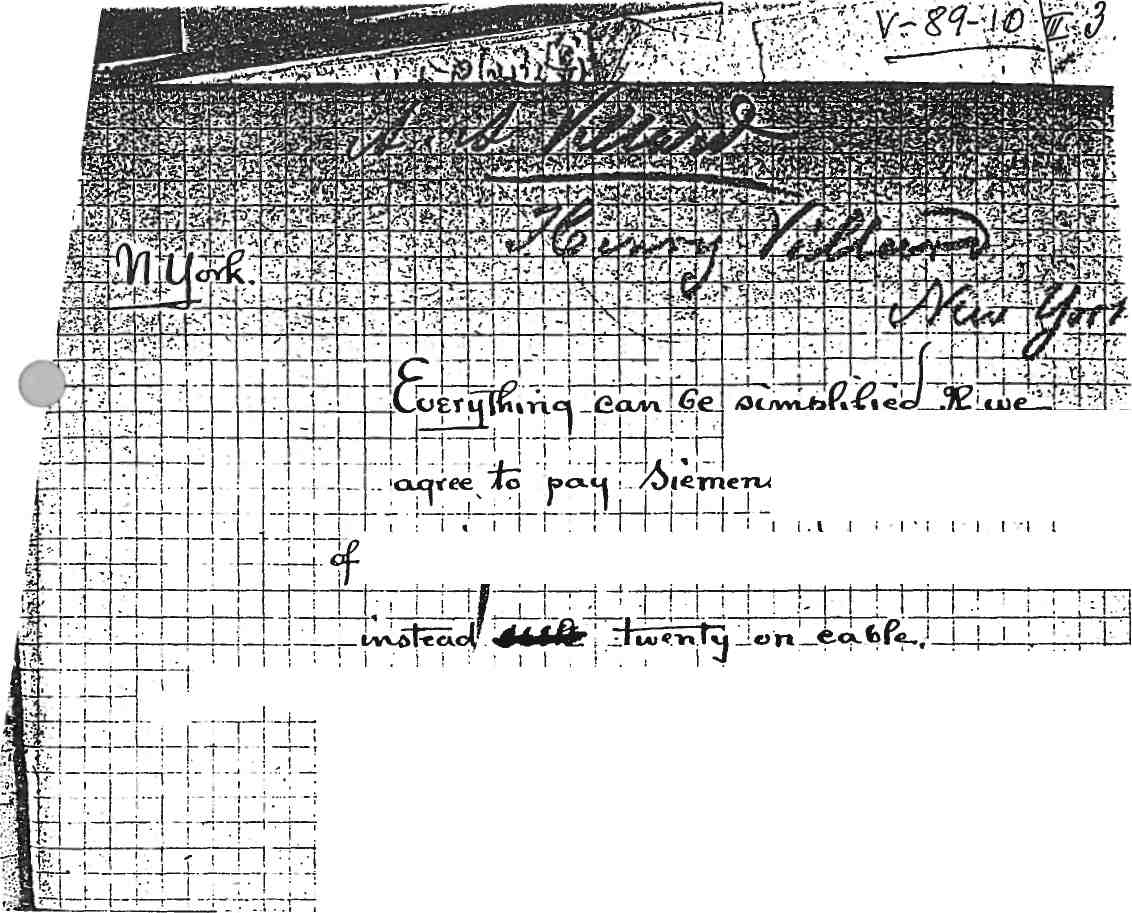 V-89-10 II 3
Villard
Henry Villard
N York.
New York
Everything can be simplified if we
agree to pay Siemen
of
instead twenty on cable.